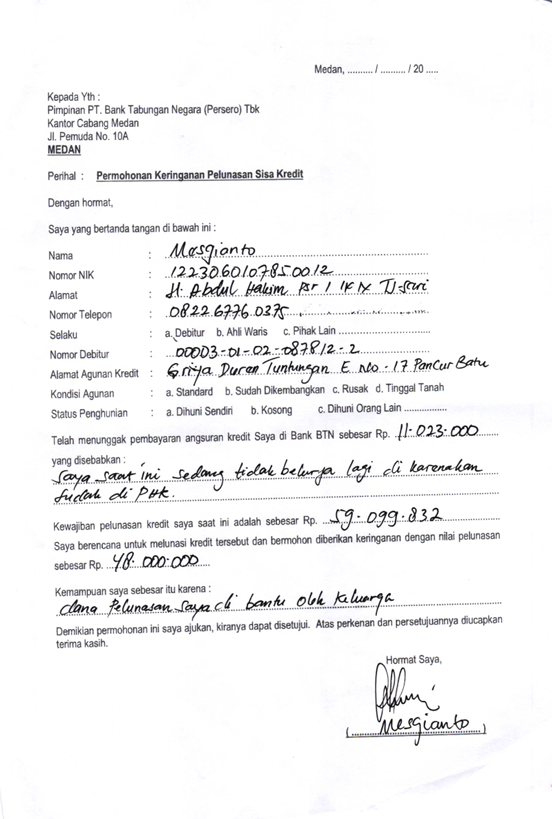 Medan, .......... / .......... / 20 .....
Kepada Yth :
Pimpinan PT. Bank Tabungan Negara (Persero) Tbk
Kantor Cabang Medan
Jl. Pemuda No. 10A
MEDAN
Perihal : Permohonan Keringanan Pelunasan Sisa Kredit
Dengan hormat,
Saya yang bertanda tangan di bawah ini :
Nama : Masgianto
Nomor NIK : 1223060107850012
Alamat : Jl. Abdul Hakim Psr 1 LK IX TJ-Sari
Nomor Telepon : 082267760375
Selaku : a. Debitur b. Ahli Waris c. Pihak Lain ..........................
Nomor Debitur : 00003-01-02-087812-2
Alamat Agunan Kredit : Griya Duran Tuntungan E No - 17 Pancur Batu
Kondisi Agunan : a. Standard b. Sudah Dikembangkan c. Rusak d. Tinggal Tanah
Status Penghunian : a. Dihuni Sendiri b. Kosong c. Dihuni Orang Lain ................
Telah menunggak pembayaran angsuran kredit Saya di Bank BTN sebesar Rp. 11.023.000
yang disebabkan :
Saya saat ini sedang tidak bekerja lagi di karenakan
sudah di PHK.
Kewajiban pelunasan kredit saya saat ini adalah sebesar Rp. 59.099.832
Saya berencana untuk melunasi kredit tersebut dan bermohon diberikan keringanan dengan nilai pelunasan
sebesar Rp. 48.000.000
Kemampuan saya sebesar itu karena :
dana Pelunasan saya di bantu oleh Keluarga
Demikian permohonan ini saya ajukan, kiranya dapat disetujui. Atas perkenan dan persetujuannya diucapkan
terima kasih.
Hormat Saya,
( Mesgianto )